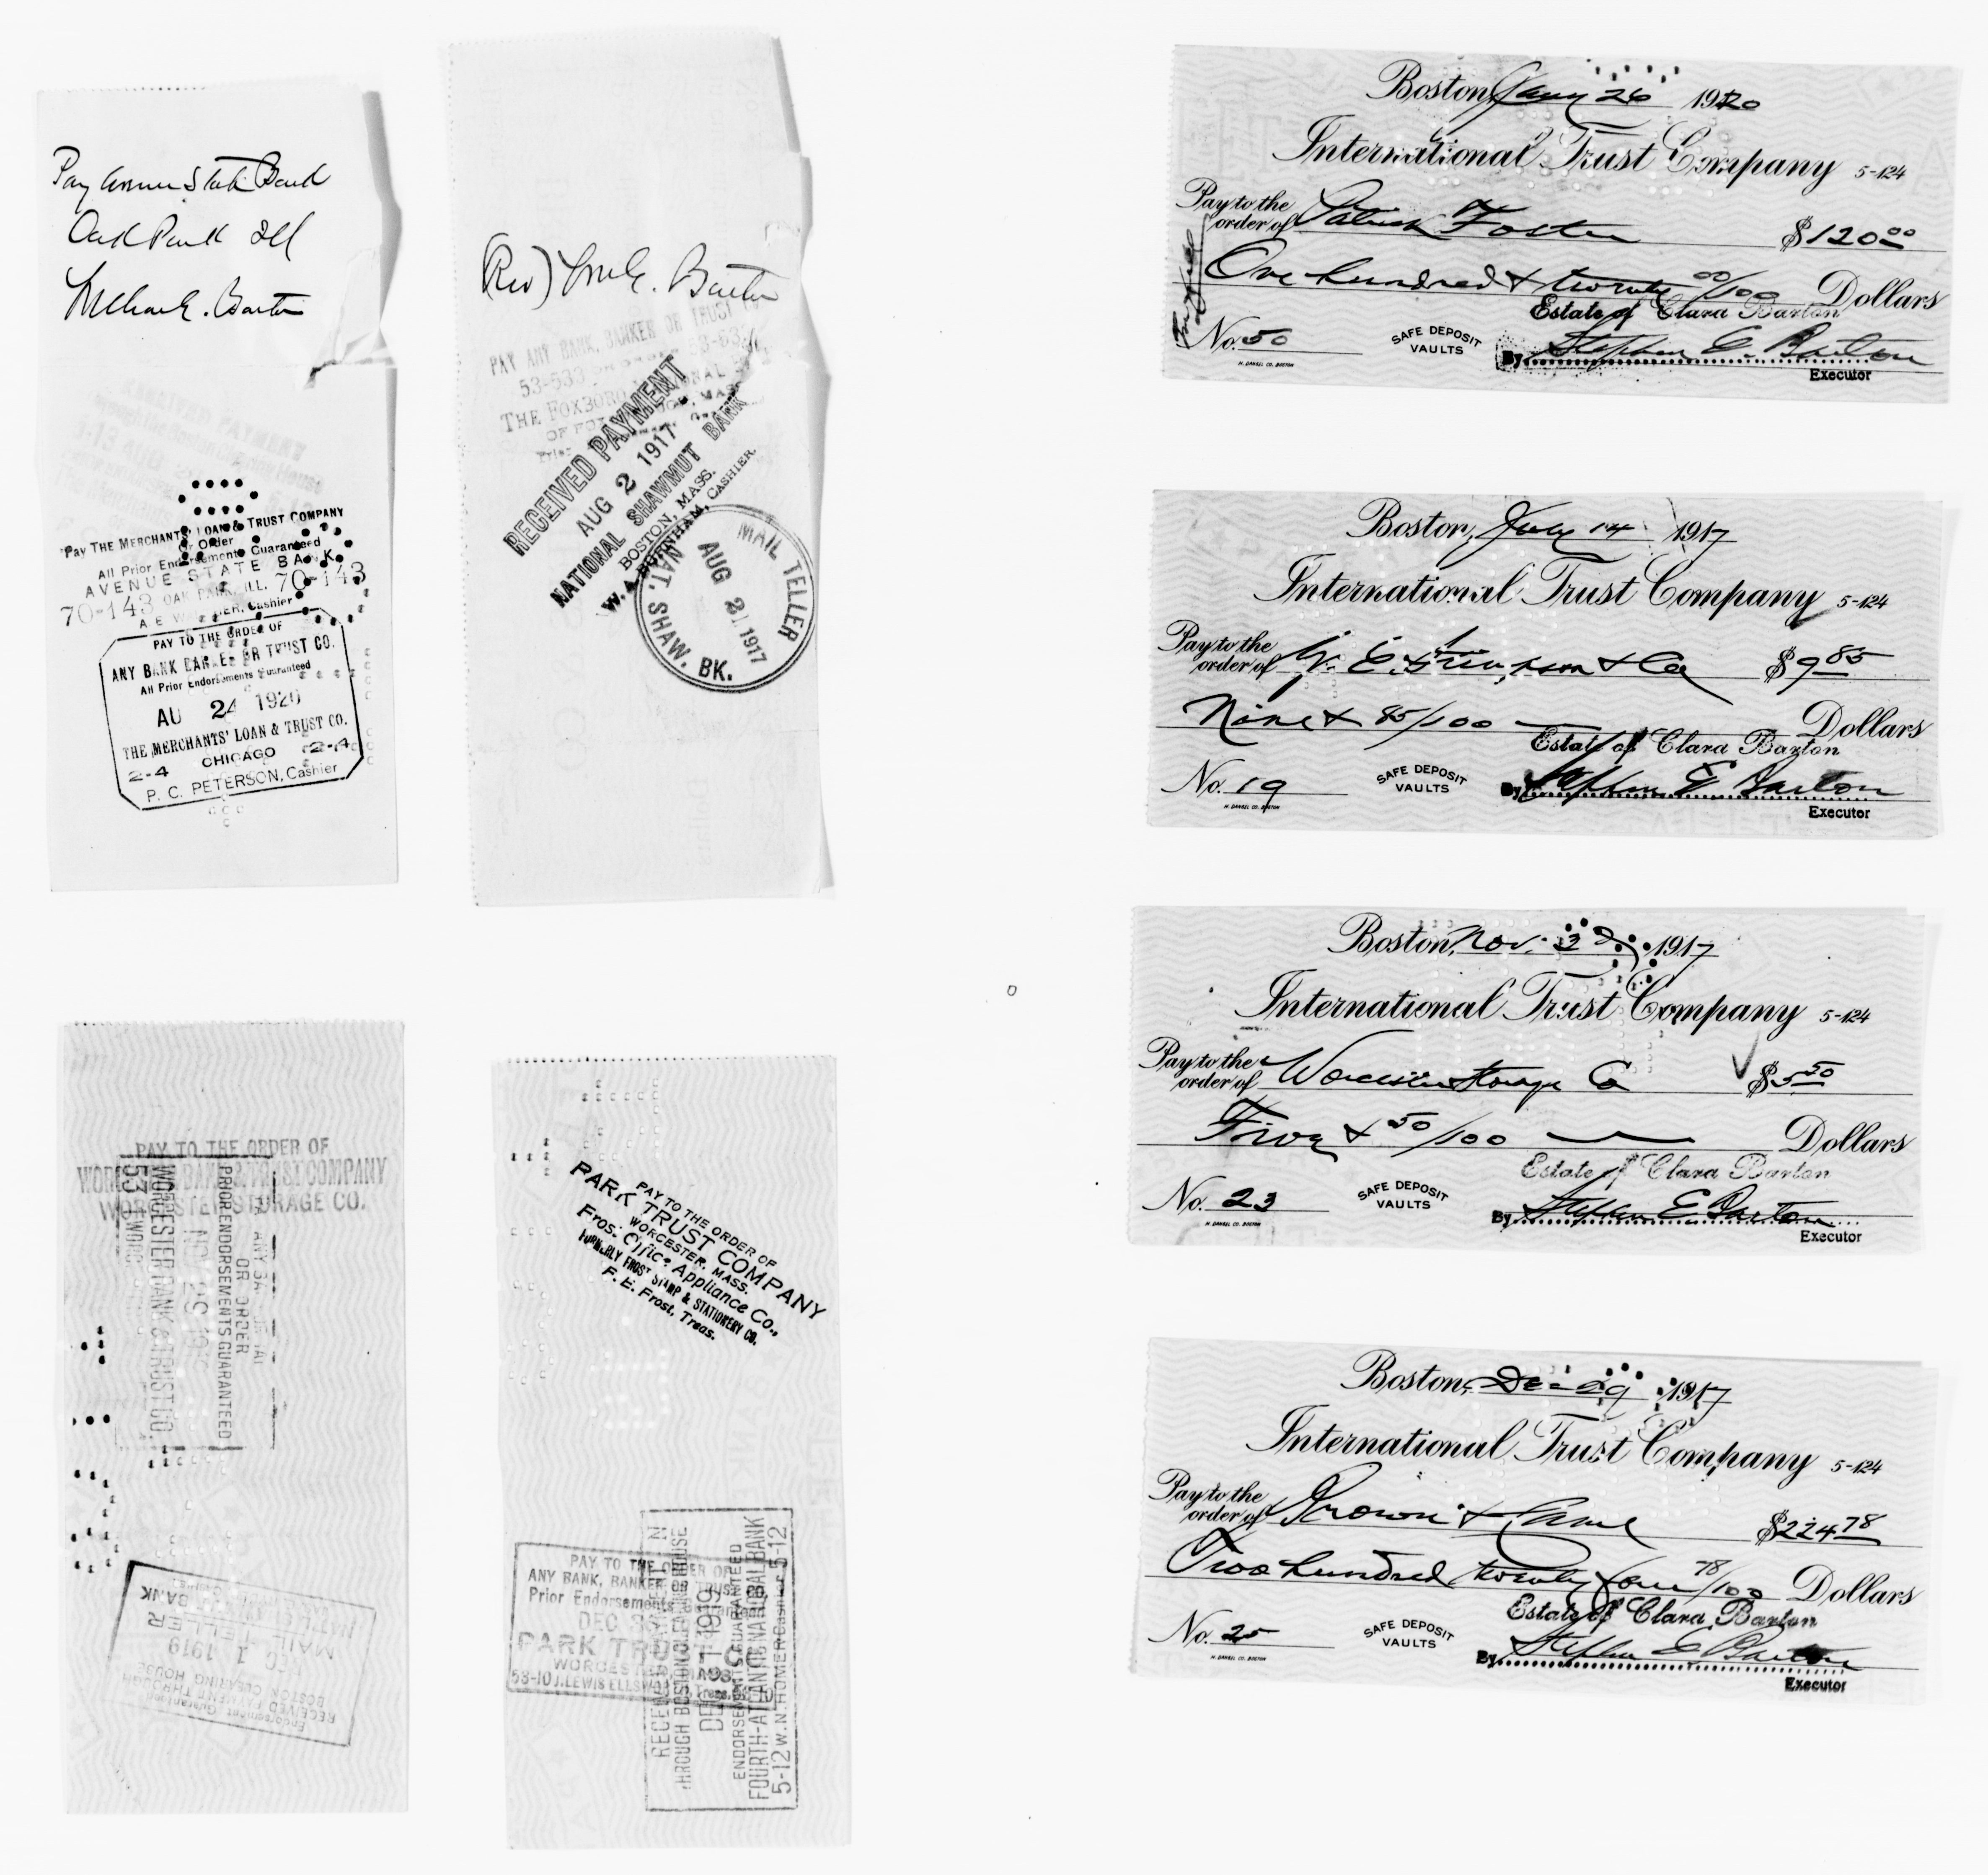 Pay Avenue State Bank
Oak Park Ill
Barton
RECEIVED PAYMENT
Pay THE MERCHANTS' LOAN & TRUST COMPANY
Or Order
All Prior Endorsements Guaranteed
AVENUE STATE BANK
70-143 OAK PARK, ILL. 70-143
Cashier
PAY TO THE ORDER OF
ANY BANK BANKER OR TRUST CO.
All Prior Endorsements Guaranteed
AU 24 1920
THE MERCHANTS' LOAN & TRUST CO.
2-4 CHICAGO 2-4
P. C. PETERSON, Cashier
(Rev) Wm E. Barton
PAY ANY BANK, BANKER OR TRUST
53-533
THE FOXBORO NATIONAL
RECEIVED PAYMENT
AUG 2 1917
NATIONAL SHAWMUT BANK
BOSTON, MASS.
W. A. BURNHAM, CASHIER.
MAIL TELLER
AUG 2 1917
NAT. SHAW. BK.
PAY TO THE ORDER OF
WORCESTER BANK & TRUST COMPANY
WORCESTER STORAGE CO.
OR ORDER
PRIOR ENDORSEMENTS GUARANTEED
WORCESTER BANK & TRUST CO.
53
BANK
MAIL TELLER
DEC 1 1919
RECEIVED PAYMENT THROUGH
BOSTON CLEARING HOUSE
Endorsement Guaranteed
PAY TO THE ORDER OF
PARK TRUST COMPANY
WORCESTER, MASS.
Frost Office Appliance Co.,
FORMERLY FROST STAMP & STATIONERY CO.
F. E. Frost, Treas.
PAY TO THE ORDER OF
ANY BANK, BANKER OR TRUST CO.
Prior Endorsements
DEC
PARK TRUST CO.
WORCESTER, MASS.
53-10 J. LEWIS ELLSWORTH, Treas.
RECEIVED PAYMENT
THROUGH BOSTON CLEARING HOUSE
DEC 1919
ENDORSEMENTS GUARANTEED
FOURTH-ATLANTIC NATIONAL BANK
5-12 W. N. HOMER Cashier 5-12
Boston, Jany 26 1920
International Trust Company 5-124
Pay to the order of Patrick Foster $120 00
One hundred & twenty 00/100 Dollars
Estate of Clara Barton
No. 50 SAFE DEPOSIT VAULTS By Stephen E. Barton
H. DANKEL CO. BOSTON Executor
Boston, July 14 1917
International Trust Company 5-124
Pay to the order of & Co $9 85
Nine & 85/100 Dollars
Estate of Clara Barton
No. 19 SAFE DEPOSIT VAULTS By Stephen E. Barton
H. DANKEL CO. BOSTON Executor
Boston, Nov. 1917
International Trust Company 5-124
Pay to the order of Worcester Storage Co $5 50
Five & 50/100 Dollars
Estate of Clara Barton
No. 23 SAFE DEPOSIT VAULTS By Stephen E. Barton
H. DANKEL CO. BOSTON Executor
Boston, Dec 29 1917
International Trust Company 5-124
Pay to the order of & $224 78
Two hundred twenty four 78/100 Dollars
Estate of Clara Barton
No. 25 SAFE DEPOSIT VAULTS By Stephen E. Barton
H. DANKEL CO. BOSTON Executor